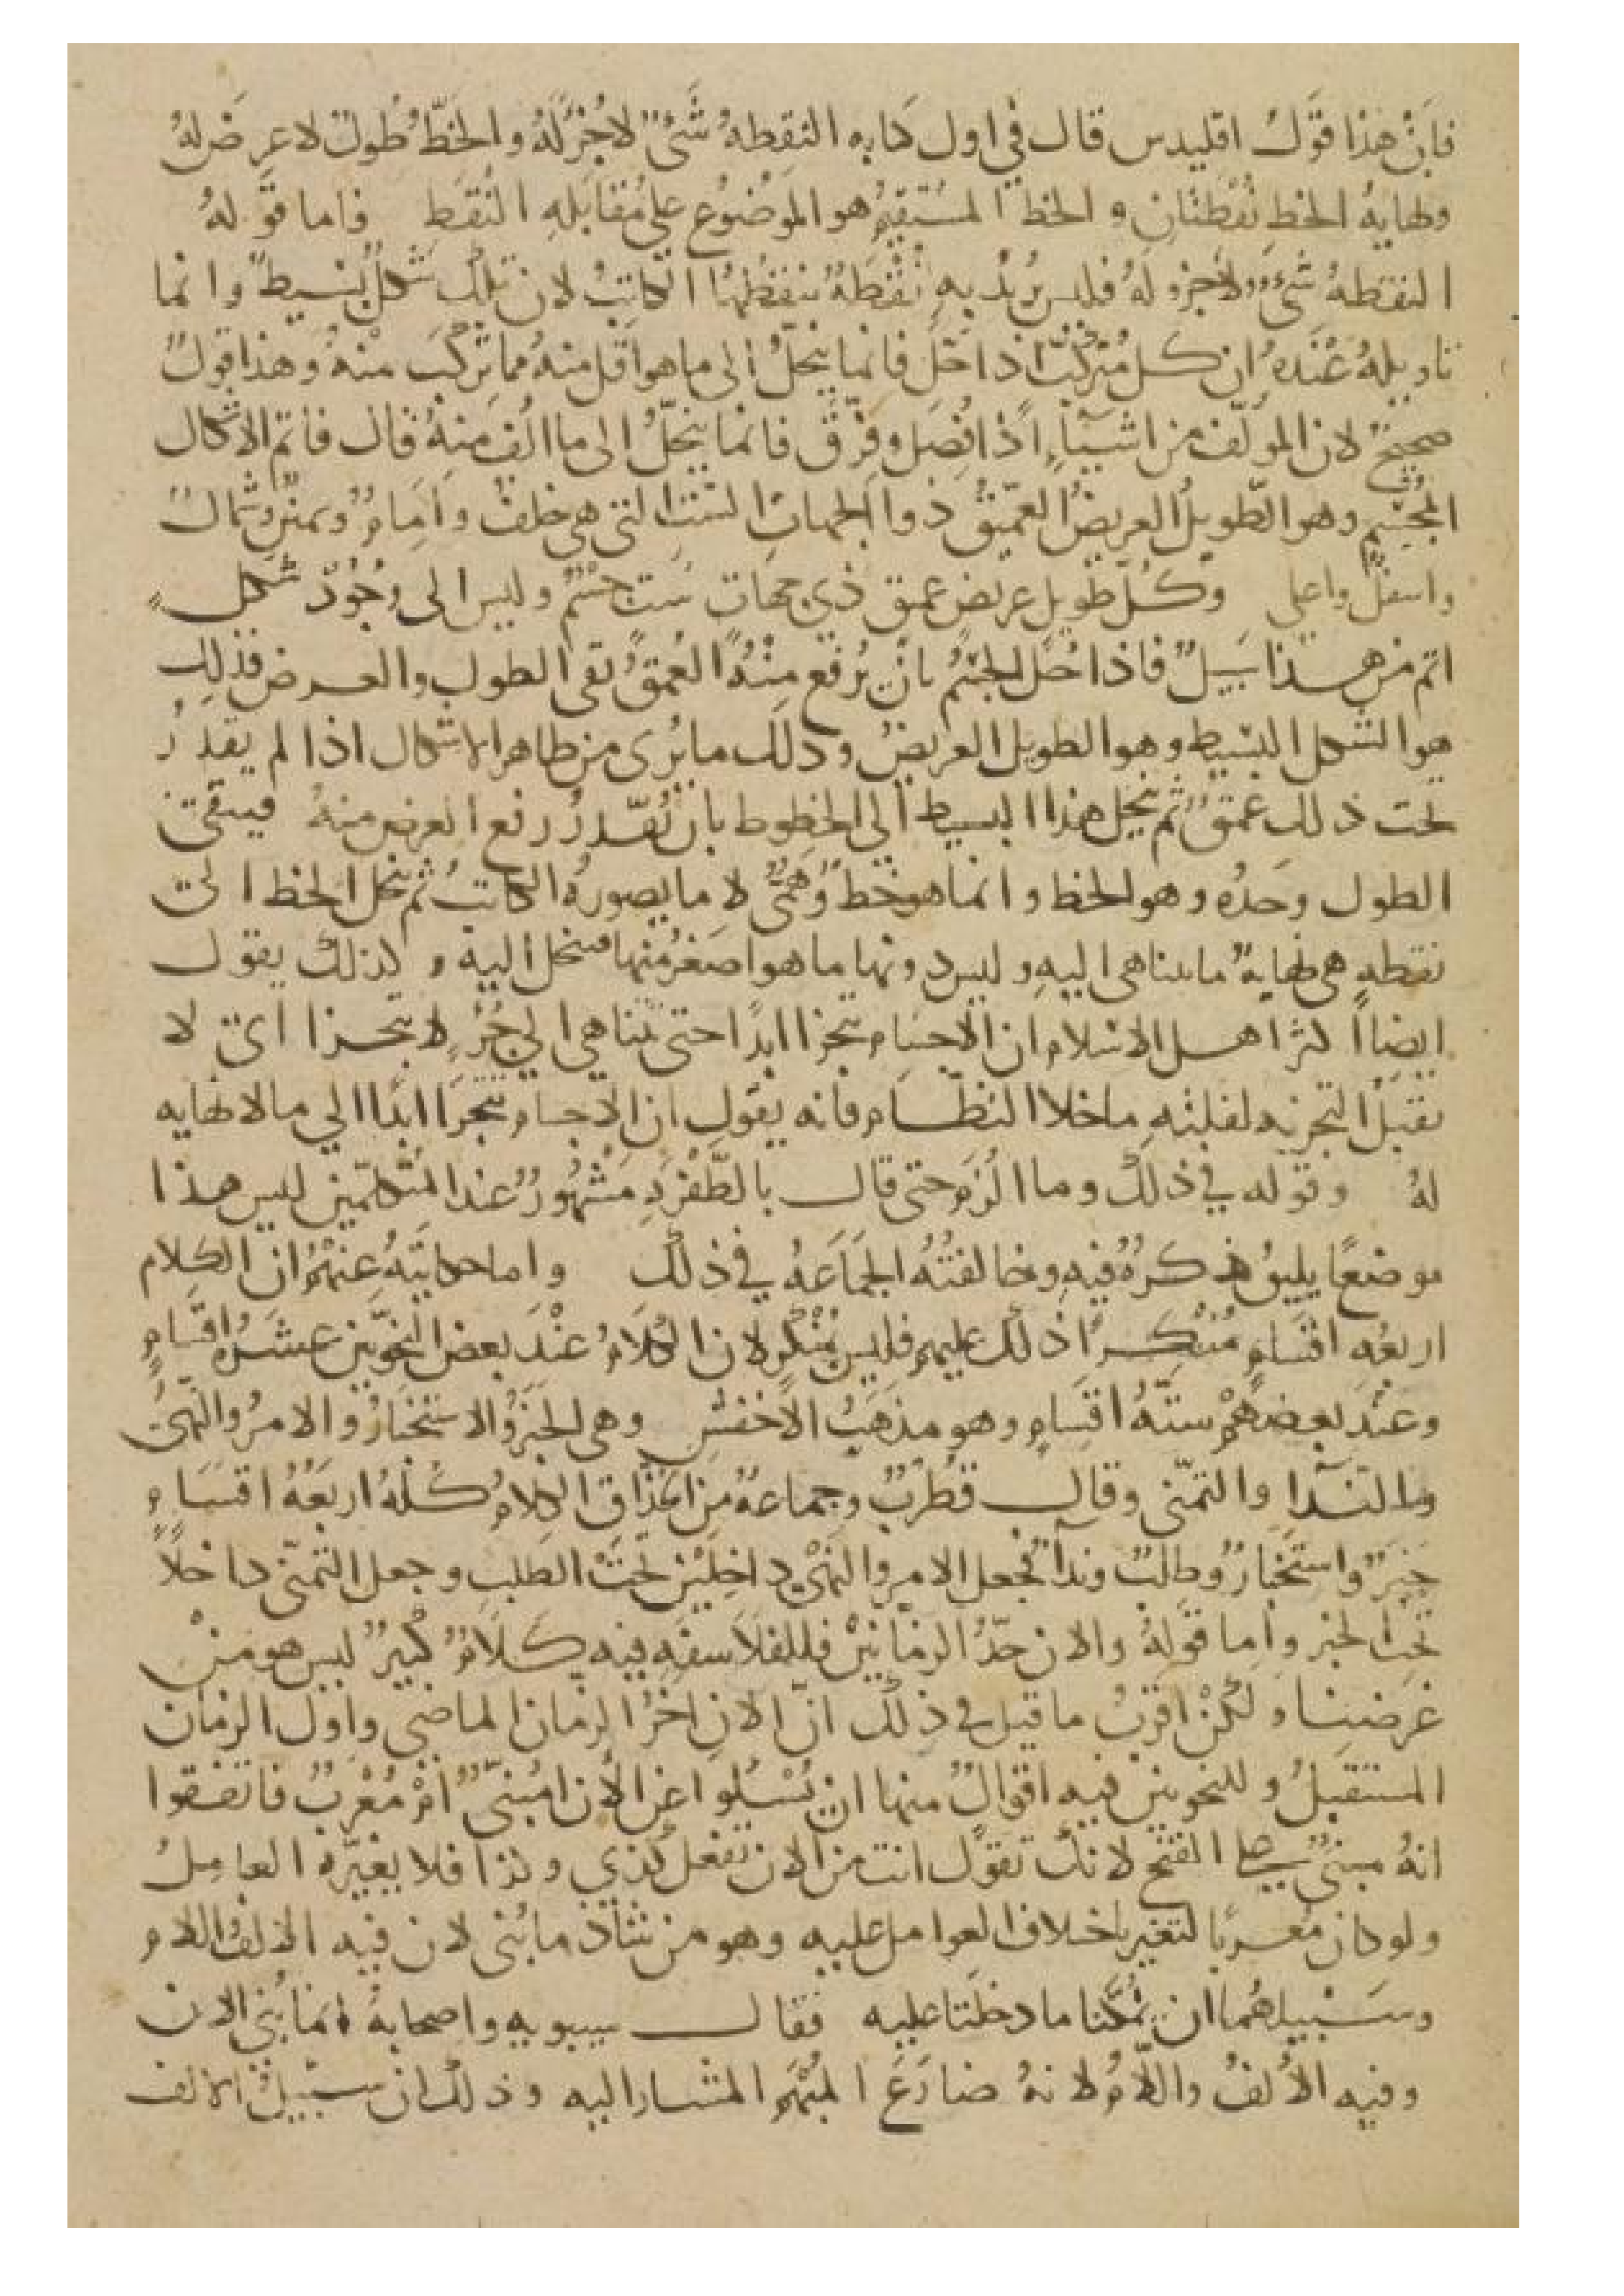 فان هذا قول اقليدس قال في اول كتابه النقطه شئ لا جزء له والخط طول لا عرض له
ونهايه الخط نقطتان والخط المستقيم هو الموضوع على مقابله النقط فاما قوله
النقطه شئ ولا جزو له فليس يريد به نقطة ينقطها الكاتب لان تلك شكل بسيط وانما
تاويله عنده ان كل متركب اذا حل فانما ينحل الى ما هو اقل منه مما تركب منه وهذا قول
صحيح لان المولف من اشياء اذا فصل وفرق فانما ينحل الى ما الف منه قال فاتم الاشكال
المجسم وهو الطويل العريض العميق ذوا الجهات الست التي هي خلف وامام ويمين وشمال
واسفل واعلى وكل طويل عريض عميق ذي جهات ست جسم وليس الى وجود شكل
اتم من هذا سبيل فاذا حل الجسم بان يرفع منه العمق بقى الطول والعرض فذلك
هو الشكل البسيط وهو الطويل العريض وذلك ما يرى من ظاهر الاشكال اذا لم يقدر
تحت ذلك عمق ثم ينحل هذا البسيط الى الخطوط بان نقدر رفع العرض منه فيبقى
الطول وحده وهو الخط وانما هو خط وهمى لا ما يصوره الكاتب ثم ينحل الخط الى
نقطه هي نهاية ما يتناهى اليه وليس دونها ما هو اصغر منها فينحل اليه ولذلك يقول
ايضا اكثر اهل الاسلام ان الاجسام تتجزا ابدا حتى تتناهى الى جزء لا يتجزا اى لا
يقبل التجزيه لقلته ما خلا النظام فانه يقول ان الاجسام تتجزا ابدا الى ما لا نهايه
له وقوله في ذلك وما الزم حتى قال بالطفره مشهور عند المتكلمين ليس هذا
موضعا يليق ذكره فيه ومخالفته الجماعه في ذلك واما حكايته عنهم ان الكلام
اربعه اقسام منكرا ذلك عليهم فليس بمنكر لان الكلام عند بعض النحويين عشره اقسام
وعند بعضهم سته اقسام وهو مذهب الاخفش وهي الخبر والاستخبار والامر والنهى
والندا والتمنى وقال قطرب وجماعه من الحذاق الكلام كله اربعه اقسام
خبر واستخبار وطلب وندآ فجعل الامر والنهى داخلين تحت الطلب وجعل التمنى داخلا
تحت الخبر واما قوله والان حد الزمانين فللفلاسفه فيه كلام كثير ليس هو من
غرضنا ولكن اقرب ما قيل في ذلك ان الان اخر الزمان الماضي واول الزمان
المستقبل وللنحويين فيه اقوال منها ان يسئلوا عن الان امبنى ام معرب فاتفقوا
انه مبنى على الفتح لانك تقول انت من الان تفعل كذي وكذا فلا يغيره العامل
ولو كان معربا لتغير باختلاف العوامل عليه وهو من شاذ ما بنى لان فيه الالف واللام
وسبيلهما ان يمكنا ما دخلتا عليه فقال سيبويه واصحابه انما بنى الان
وفيه الالف واللام لانه ضارع المبهم المشار اليه وذلك ان سبيل الالف